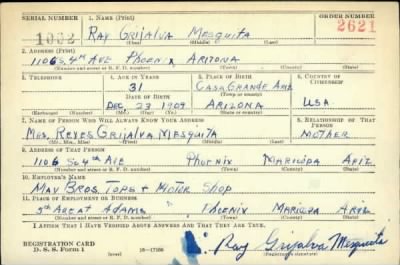 SERIAL NUMBER 1. NAME (Print) ORDER NUMBER
1002 RAY GRIJALVA MESQUITA 2621
(First) (Middle) (Last)
2. ADDRESS (Print)
1106 S. 4th AVE PHOENIX ARIZONA
(Number and street or R. F. D. number) (Town) (County) (State)
3. TELEPHONE 4. AGE IN YEARS 5. PLACE OF BIRTH 6. COUNTRY OF CITIZENSHIP
31 CASA GRANDE ARIZ
DATE OF BIRTH (Town or county)
DEC 23 1909 ARIZONA USA
(Exchange) (Number) (Mo.) (Day) (Yr.) (State or country)
7. NAME OF PERSON WHO WILL ALWAYS KNOW YOUR ADDRESS 8. RELATIONSHIP OF THAT PERSON
MRS. REYES GRIJALVA MESQUITA MOTHER
(Mr., Mrs., Miss) (First) (Middle) (Last)
9. ADDRESS OF THAT PERSON
1106 So 4th AVE PHOENIX MARICOPA ARIZ
(Number and street or R. F. D. number) (Town) (County) (State)
10. EMPLOYER'S NAME
MAY BROS. TOPS + MOTOR SHOP
11. PLACE OF EMPLOYMENT OR BUSINESS
5th AVE AT ADAMS PHOENIX MARICOPA ARIZ
(Number and street or R. F. D. number) (Town) (County) (State)
I AFFIRM THAT I HAVE VERIFIED ABOVE ANSWERS AND THAT THEY ARE TRUE.
REGISTRATION CARD
D. S. S. Form 1 (over) 16—17105 Ray Grijalva Mesquita
(Registrant's signature)